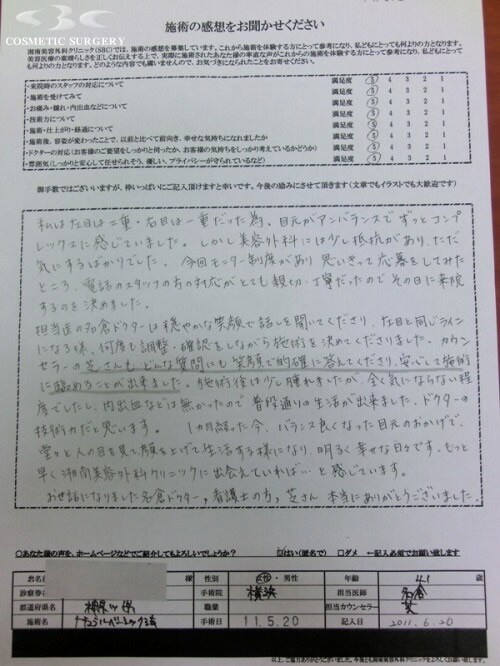 SBC
COSMETIC SURGERY
施術の感想をお聞かせください
湘南美容外科クリニック(SBC)では、施術の感想を募集しています。これから施術を体験する方にとって参考になり、私どもにとっても何よりの力となります。
・来院時のスタッフの対応について 満足度 5 4 3 2 1
・施術を受けてみて 満足度 5 4 3 2 1
・お痛み・腫れ・内出血などについて 満足度 5 4 3 2 1
・技術力について 満足度 5 4 3 2 1
・施術・仕上がり・経過について 満足度 5 4 3 2 1
・施術後、容姿が変わったことで、以前と比べて前向き、幸せな気持ちになれましたか 満足度 5 4 3 2 1
・ドクターの対応(お客様のご要望をしっかりと伺ったか、お客様の気持ちをしっかり考えているかどうか) 満足度 5 4 3 2 1
・雰囲気(しっかりと安心して任せられそう、優しい、プライバシーが守られているなど) 満足度 5 4 3 2 1
御手数ではございますが、枠いっぱいにご記入頂けますと幸いです。今後の励みにさせて頂きます(文章でもイラストでも大歓迎です)
私は左目は二重・右目は一重だった為、目元がアンバランスでずっとコンプ
レックスに感じていました。しかし美容外科には少し抵抗があり、ただ
気にするばかりでした。今回モニター制度があり思いきって応募をしてみた
ところ、電話のスタッフの方の対応がとても親切・丁寧だったのでその日に来院
するのを決めました。
担当医の名倉ドクターは穏やかな笑顔で話しを聞いてくださり、左目と同じライン
になる様、何度も調整・確認をしながら施術を決めてくださりました。カウン
セラーの芝さんも、どんな質問にも笑顔で的確に答えてくださり、安心して施術
に臨めることが出来ました。施術後は少し腫れましたが、全く気にならない程
度でしたし、内出血などは無かったので普段通りの生活が出来ました。ドクターの
技術力だと思います。 1カ月経った今、バランス良くなった目元のおかげで、
堂々と人の目を見て顔を上げて生活する様になり、明るく幸せな日々です。もっと
早く湘南美容外科クリニックに出会えていれば…と感じています。
お世話になりました名倉ドクター、看護士の方、芝さん 本当にありがとうございました。
○あなた様の声を、ホームページなどでご紹介してもよろしいでしょうか? ☑はい(匿名で) □ダメ ←記入必須でお願い致します
お名前 様 性別 女性・男性 年齢 41 歳
診療券 手術院 横浜 担当医師 名倉
都道府県名 神奈川県 職業 担当カウンセラー 芝
施術名 手術日 11.5.20 記入日 2011.6.20
以上、ご協力ありがとうございました。今後とも湘南美容外科クリニックをよろしくお願い致します。